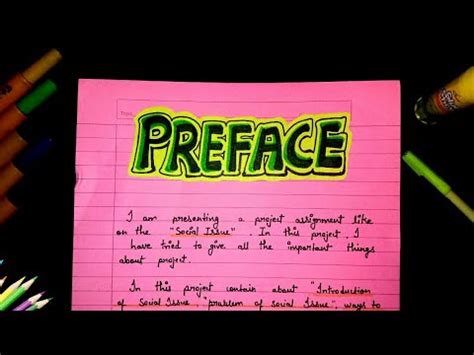 PREFACE
I am presenting a project assignment like
on the "Social Issue". In this project I
have tried to give all the important things
about project.
In this project contain about "Introduction
of Social Issue, "problem of social Issue", ways to